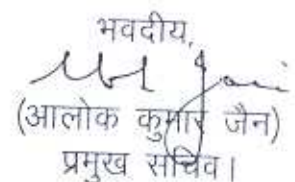 भवदीय,
(आलोक कुमार जैन)
प्रमुख सचिव।